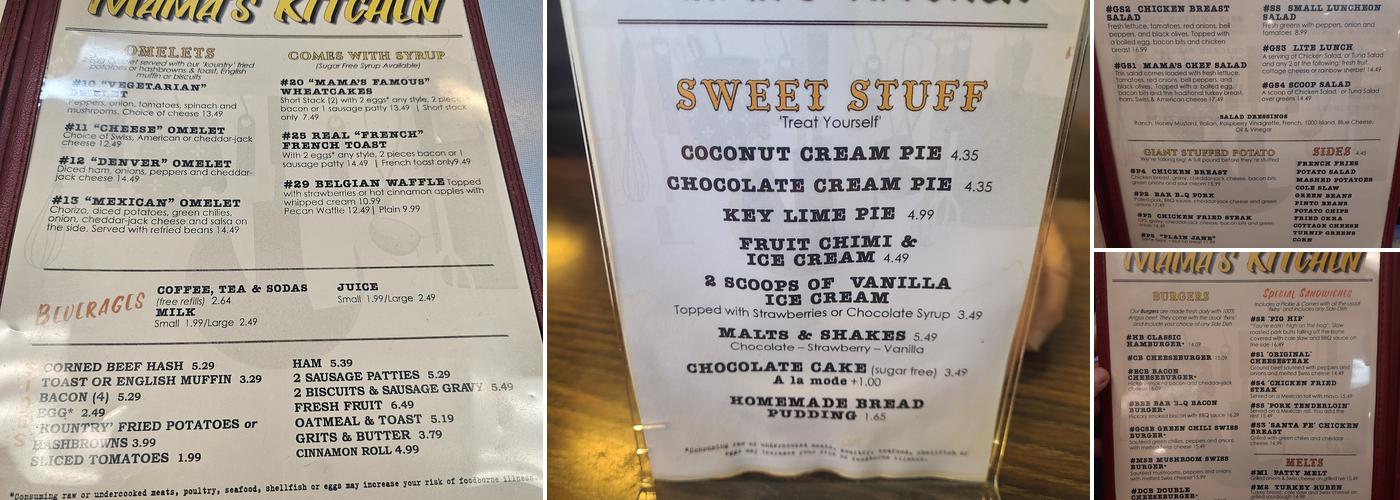 MAMA'S KITCHEN
OMELETS
served with our 'kountry' fried
potatoes or hashbrowns & toast, English
muffin or biscuits
#10 "VEGETARIAN"
Peppers, onion, tomatoes, spinach and
mushrooms. Choice of cheese 13.49
#11 "CHEESE" OMELET
Choice of Swiss, American or cheddar-jack
cheese 12.49
#12 "DENVER" OMELET
Diced ham, onions, peppers and cheddar-
jack cheese 14.49
#13 "MEXICAN" OMELET
Chorizo, diced potatoes, green chilies,
onion, cheddar-jack cheese and salsa on
the side. Served with refried beans 14.49
COMES WITH SYRUP
(Sugar Free Syrup Available)
#20 "MAMA'S FAMOUS"
WHEATCAKES
Short Stack (2) with 2 eggs* any style, 2 piece
bacon or 1 sausage patty 13.49 | Short stack
only 7.49
#25 REAL "FRENCH"
FRENCH TOAST
With 2 eggs* any style, 2 pieces bacon or 1
sausage patty 14.49 | French toast only9.49
#29 BELGIAN WAFFLE Topped
with strawberries or hot cinnamon apples with
whipped cream 10.99
Pecan Waffle 12.49| Plain 9.99
BEVERAGES
COFFEE, TEA & SODAS
(free refills) 2.64
MILK
Small 1.99/Large 2.49
JUICE
Small 1.99/Large 2.49
CORNED BEEF HASH 5.29
TOAST OR ENGLISH MUFFIN 3.29
BACON (4) 5.29
EGG* 2.49
'KOUNTRY' FRIED POTATOES or
HASHBROWNS 3.99
SLICED TOMATOES 1.99
HAM 5.39
2 SAUSAGE PATTIES 5.29
2 BISCUITS & SAUSAGE GRAVY 5.49
FRESH FRUIT 6.49
OATMEAL & TOAST 5.19
GRITS & BUTTER 3.79
CINNAMON ROLL 4.99
*Consuming raw or undercooked meats, poultry, seafood, shellfish or eggs may increase your risk of foodborne illness.
SWEET STUFF
'Treat Yourself'
COCONUT CREAM PIE 4.35
CHOCOLATE CREAM PIE 4.35
KEY LIME PIE 4.99
FRUIT CHIMI &
ICE CREAM 4.49
2 SCOOPS OF VANILLA
ICE CREAM
Topped with Strawberries or Chocolate Syrup 3.49
MALTS & SHAKES 5.49
Chocolate – Strawberry – Vanilla
CHOCOLATE CAKE (sugar free) 3.49
A la mode +1.00
HOMEMADE BREAD
PUDDING 1.65
*Consuming raw or undercooked meats, poultry, seafood, shellfish or
eggs may increase your risk of foodborne illness.
#GS2 CHICKEN BREAST
SALAD
Fresh lettuce, tomatoes, red onions, bell
peppers, and black olives. Topped with
a boiled egg, bacon bits and chicken
breast 16.99
#GS1 MAMA'S CHEF SALAD
This salad comes loaded with fresh lettuce,
tomatoes, red onions, bell peppers, and
black olives. Topped with a boiled egg,
bacon bits and the traditional turkey breast,
ham, Swiss & American cheese 17.49
#SS SMALL LUNCHEON
SALAD
Fresh greens with peppers, onion and
tomatoes 8.99
#GS3 LITE LUNCH
A serving of Chicken Salad, or Tuna Salad
and any 2 of the following: fresh fruit,
cottage cheese or rainbow sherbet 14.49
#GS4 SCOOP SALAD
A scoop of Chicken Salad, or Tuna Salad
over greens 14.49
SALAD DRESSINGS
Ranch, Honey Mustard, Italian, Raspberry Vinaigrette, French, 1000 Island, Blue Cheese,
Oil & Vinegar
GIANT STUFFED POTATO
We're talking big! A full pound before they're stuffed
#P4 CHICKEN BREAST
Chicken breast, gravy, cheddar-jack cheese, bacon bits,
green onions and sour cream 15.99
#P2 BAR B-Q PORK
Pulled pork, BBQ sauce, cheddar-jack cheese and green
#P3 CHICKEN FRIED STEAK
#P5 "PLAIN JANE"
SIDES 4.45
FRENCH FRIES
POTATO SALAD
MASHED POTATOES
COLE SLAW
GREEN BEANS
PINTO BEANS
POTATO CHIPS
FRIED OKRA
COTTAGE CHEESE
TURNIP GREENS
CORN
MAMA'S KITCHEN
BURGERS
Our Burgers are made fresh daily with 100%
Angus beef. They come with the usual "fixins"
and include your choice of any Side Dish
#HB CLASSIC
HAMBURGER* 14.09
#CB CHEESEBURGER 15.09
#BCB BACON
CHEESEBURGER*
#BBB BAR B-Q BACON
BURGER*
Hickory smoked bacon with BBQ sauce 16.29
#GCSB GREEN CHILI SWISS
BURGER*
#MSB MUSHROOM SWISS
BURGER*
Sauteed mushrooms, peppers and onions
#DCB DOUBLE
CHEESEBURGER*
SPECIAL SANDWICHES
Includes a Pickle & Comes with all the usual
"fixins" and includes any Side Dish
#S2 'PIG HIP'
"You're eatin' high on the hog". Slow
roasted pork butts falling off the bone
covered with cole slaw and BBQ sauce on
the side 16.49
#S1 'ORIGINAL'
CHEESESTEAK
Ground beef sauteed with peppers and
onions and melted Swiss cheese 14.49
#S4 'CHICKEN FRIED
STEAK
Served on a Mexican roll with mayo. 15.49
#S5 'PORK TENDERLOIN'
Served on a Mexican roll. You add the
rest 15.49
#S3 'SANTA FE' CHICKEN
BREAST
Grilled with green chilies and cheddar
cheese 14.99
MELTS
#M1 PATTY MELT
#M2 TURKEY RUBEN